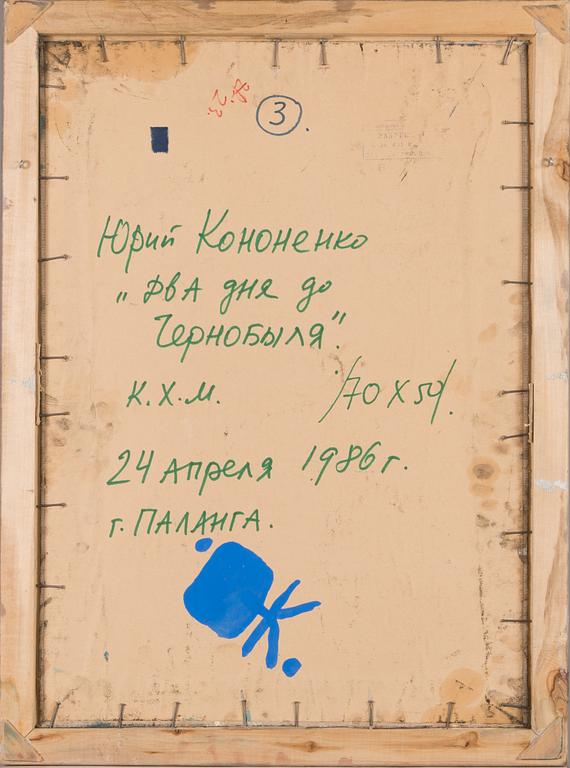 3.
Юрий Кононенко
„Два дня до
Чернобыля".
К.Х.М. /70 X 50/.
24 Апреля 1986 г.
г. ПАЛАНГА.